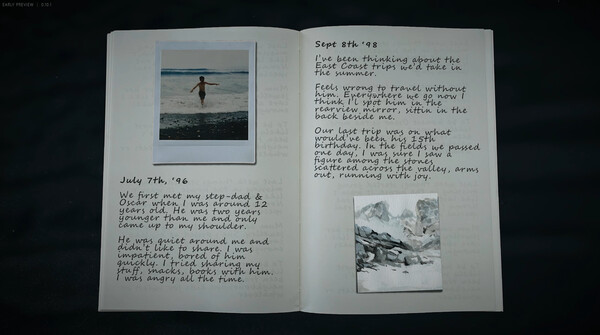 EARLY PREVIEW | 0.10.1
July 7th, '96
We first met my step-dad &
Oscar when I was around 12
years old. He was two years
younger than me and only
came up to my shoulder.
He was quiet around me and
didn't like to share. I was
impatient, bored of him
quickly. I tried sharing my
stuff, snacks, books with him.
I was angry all the time.
Sept 8th '98
I've been thinking about the
East Coast trips we'd take in
the summer.
Feels wrong to travel without
him. Everywhere we go now I
think I'll spot him in the
rearview mirror, sittin in the
back beside me.
Our last trip was on what
would've been his 15th
birthday. In the fields we passed
one day, I was sure I saw a
figure among the stones
scattered across the valley, arms
out, running with joy.